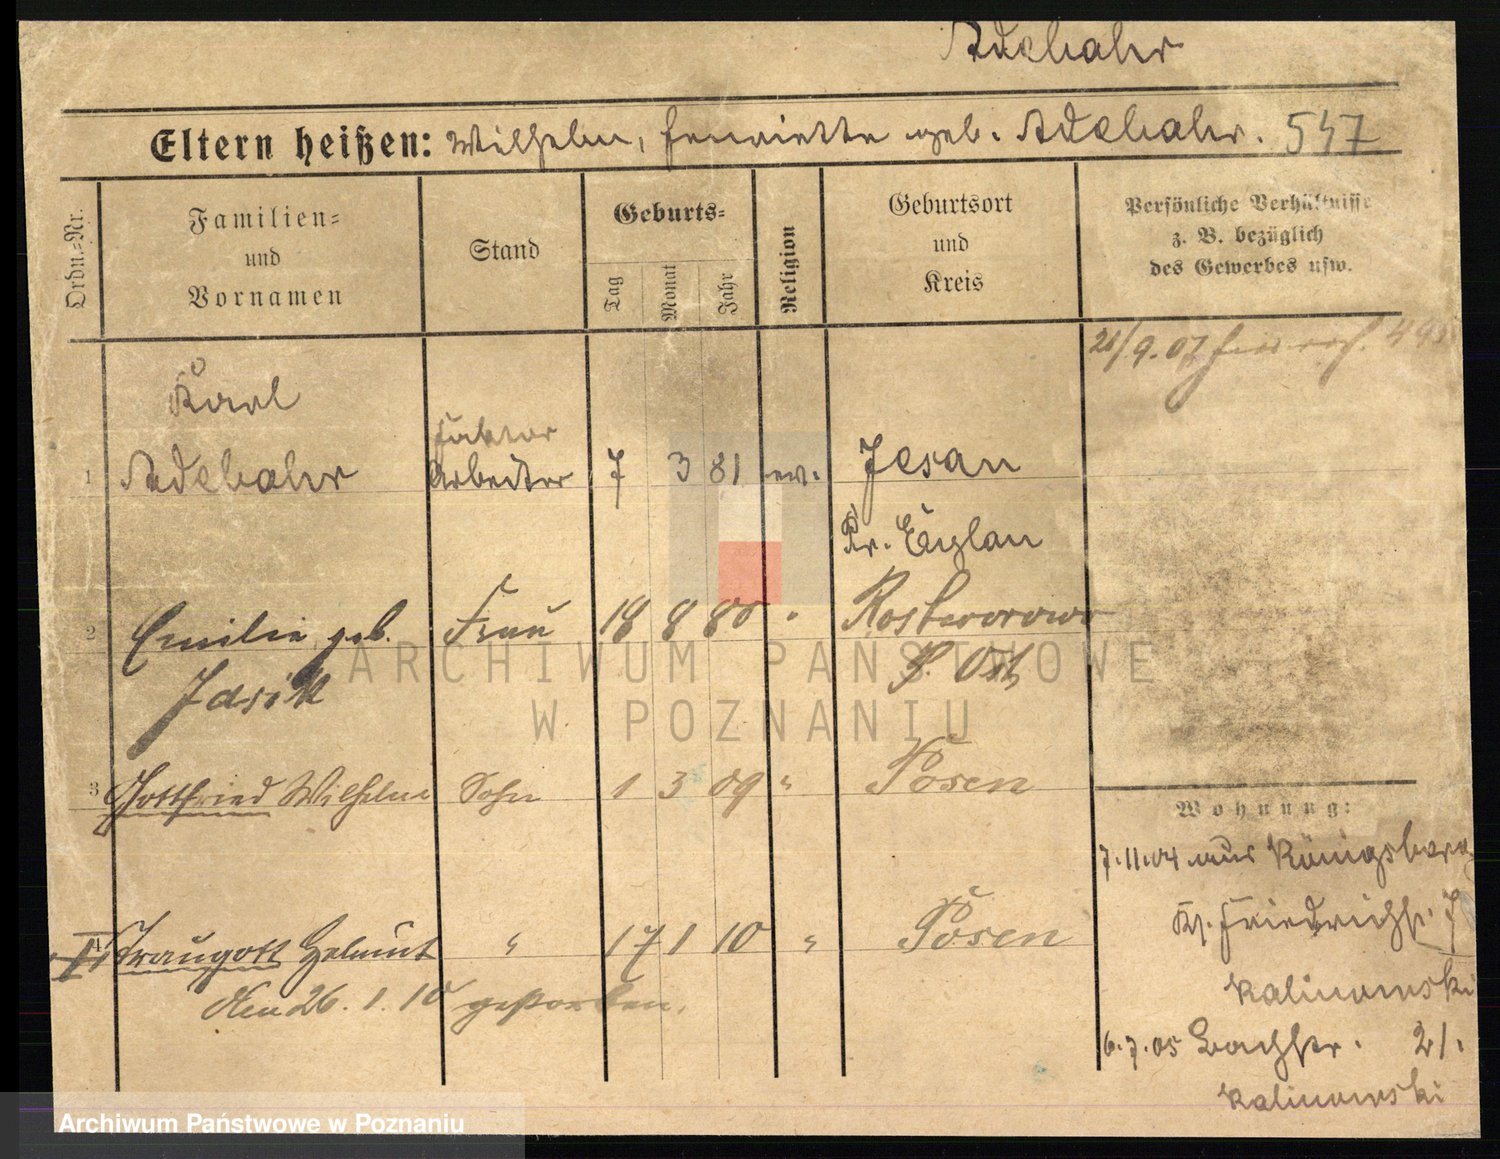 Adebahr
Eltern heißen: Wilhelm, Henriette geb. Adebahr. 547
Ordn.-Nr.
Familien-
und
Vornamen
Stand
Geburts-
Tag
Monat
Jahr
Religion
Geburtsort
und
Kreis
Persönliche Verhältnisse
z. B. bezüglich
des Gewerbes usw.
21/9.07
Karl
Faktor
1 Adebahr Arbeiter 7 3 81 ev. Jesau
Kr. Eylau
2 Emilie geb. Frau 18 8 80 " Rostworowo
Jasik P. Ost
3 Gottfried Wilhelm Sohn 1 3 09 " Posen
4 Traugott Helmut " 17 1 10 " Posen
den 26. 1. 10 gestorben.
Wohnung:
7.11.04 aus Königsberg
Kl. Friedrichstr. 7
Kalinowski
6.7.05 Bachstr. 21.
Kalinowski
ARCHIWUM PAŃSTWOWE
W POZNANIU
Archiwum Państwowe w Poznaniu